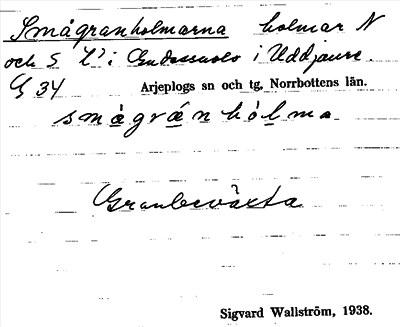 Smågranholmarna holmar N
och S i Uddjaure.
G 34 Arjeplogs sn och tg, Norrbottens län.
smågránhólma
Granbeväxta
Sigvard Wallström, 1938.